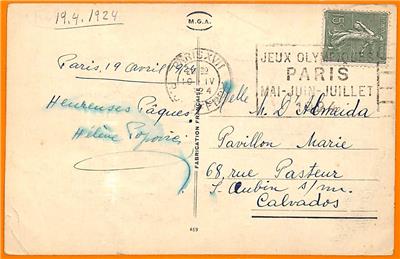 19.4.1924
M.G.A.
Paris, 19 avril 1924
Heureuses Pâques
Hélène
FABRICATION FRANÇAISE
469
PARIS XVII
19 IV
JEUX OLYMPIQUES
PARIS
MAI-JUIN-JUILLET
15c
Melle
M. D'Almeida
Pavillon Marie
68, rue Pasteur
St Aubin s/m.
Calvados